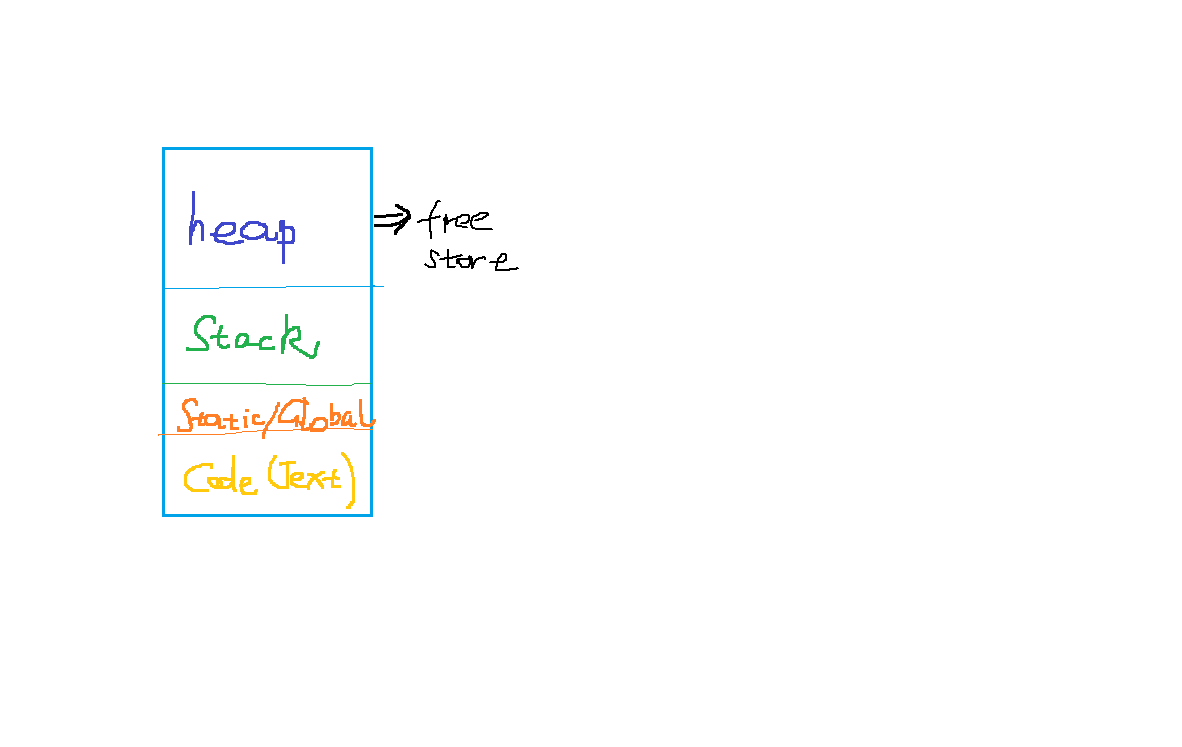 heap
free
store
Stack
Static/Global
Code (Text)